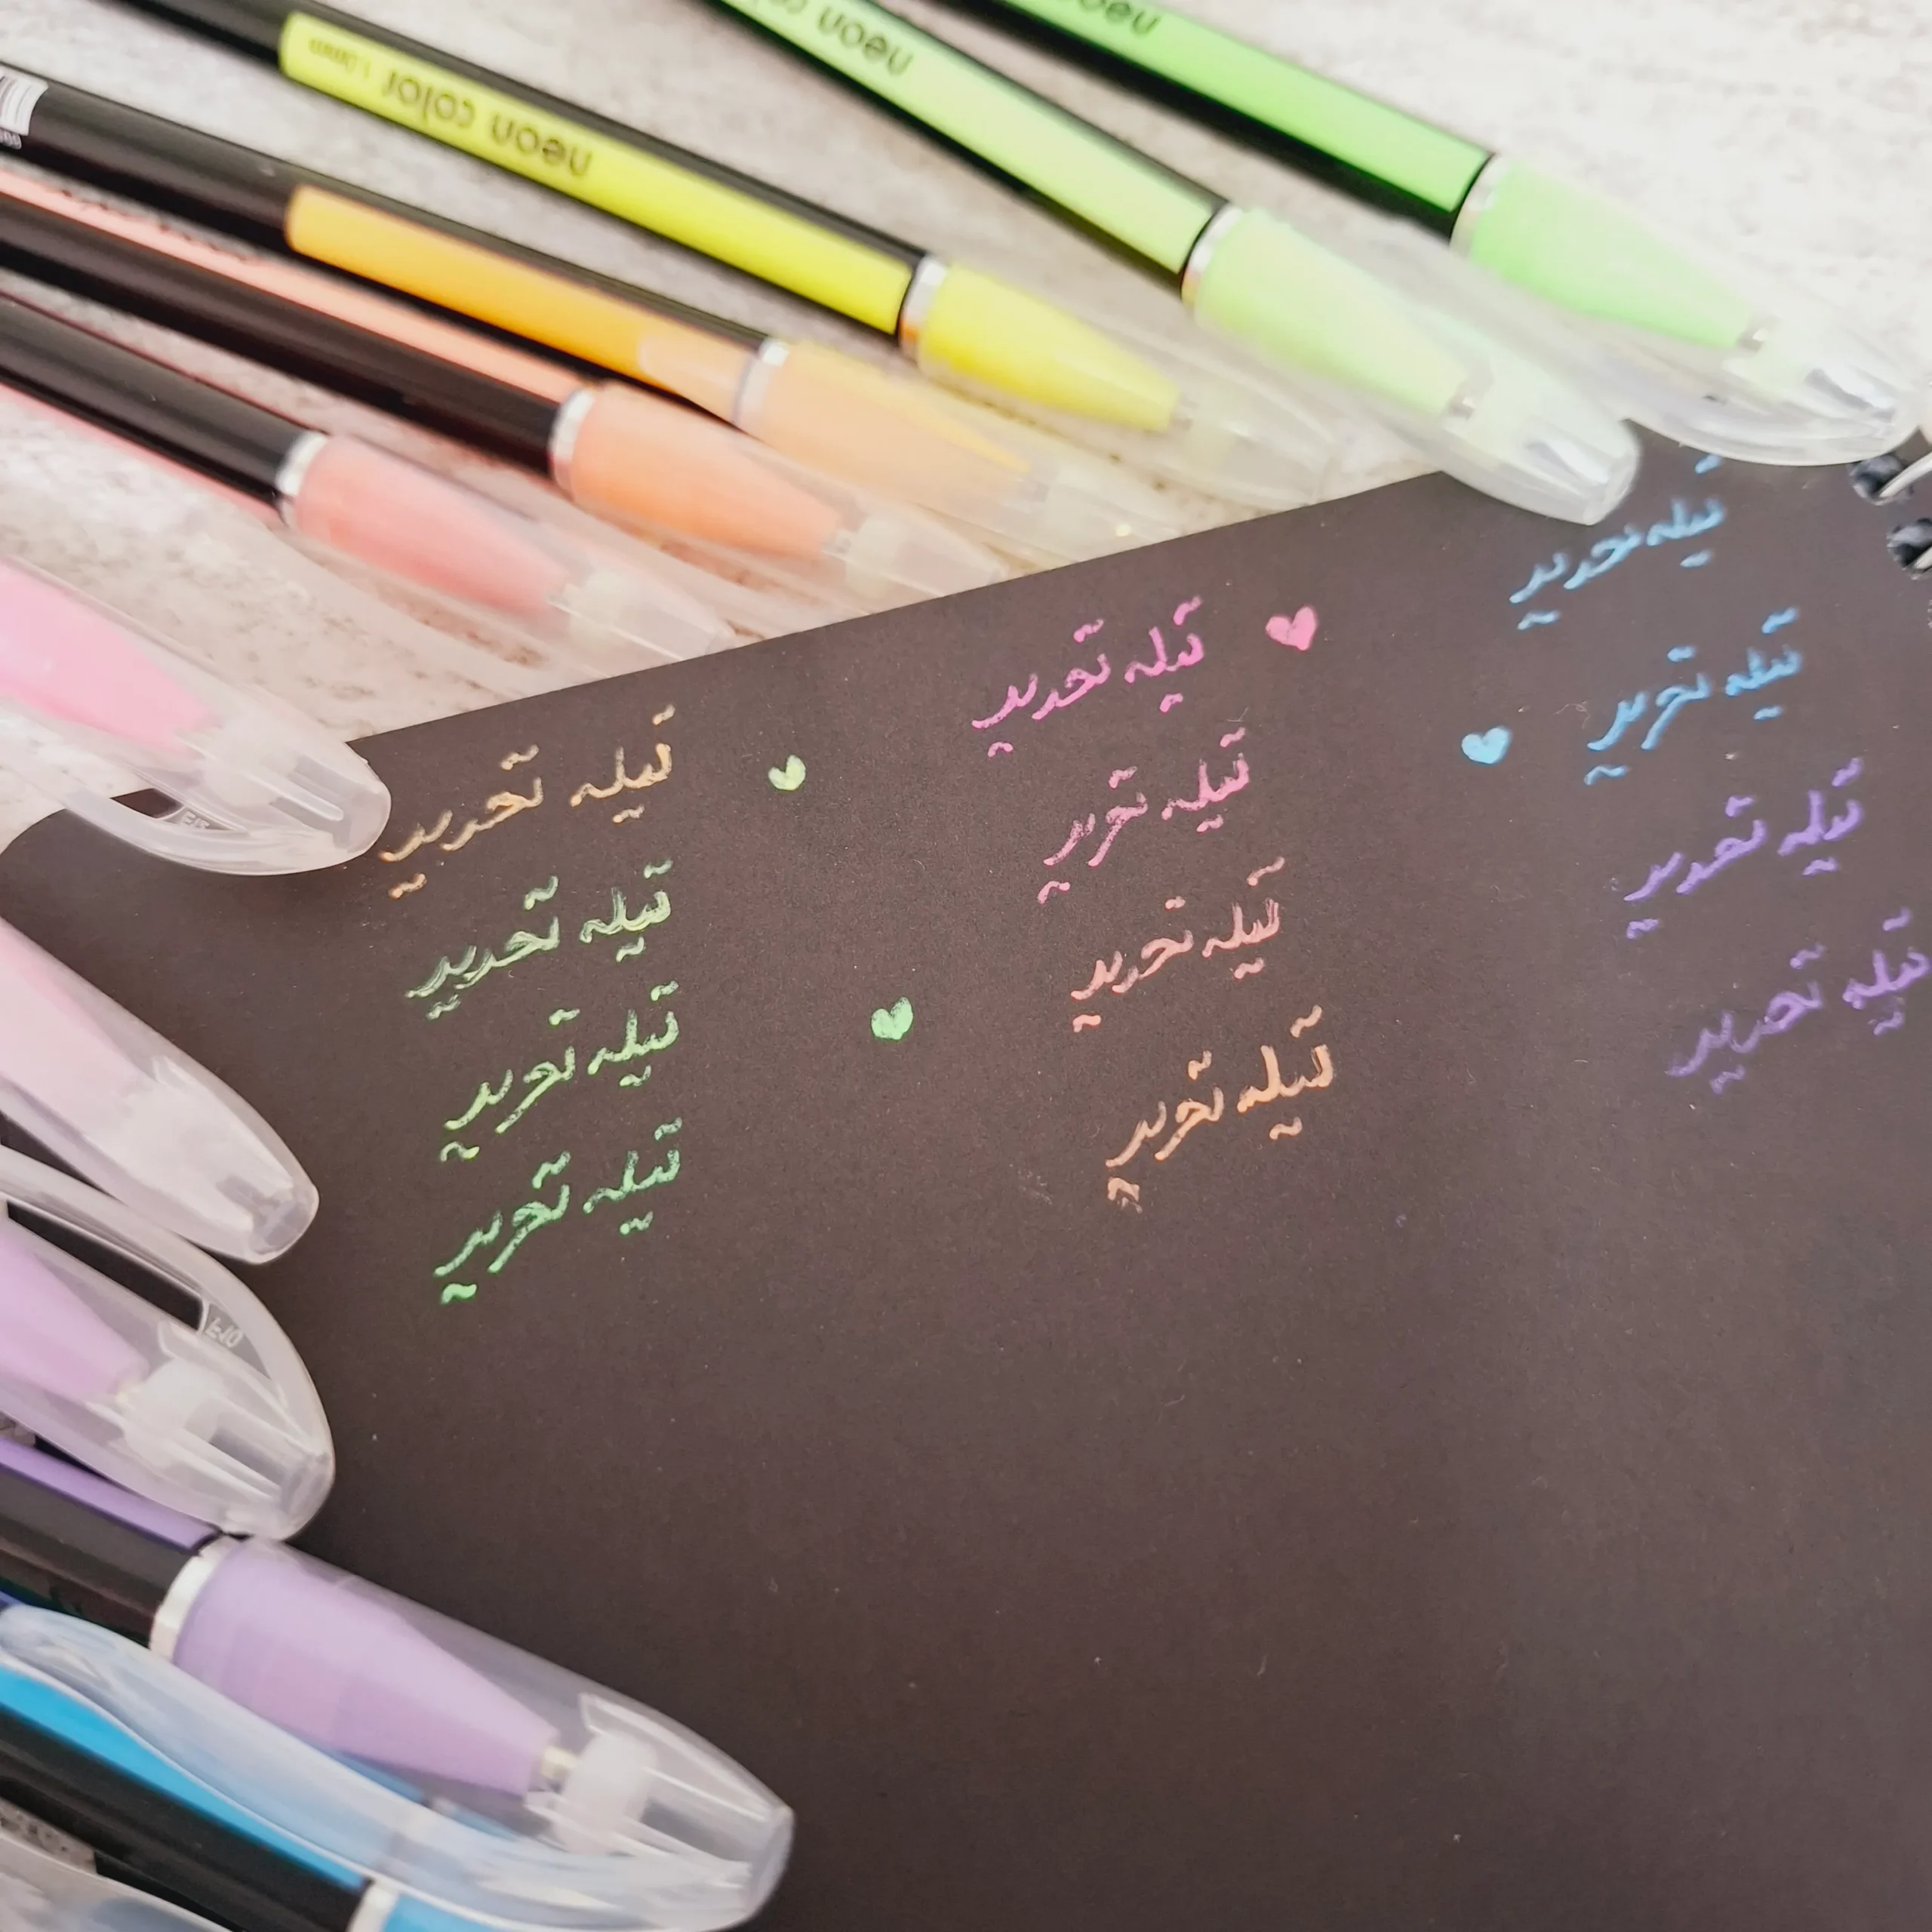 neon color 1.0mm
neon co
neon
تیله تحریر
تیله تحریر
تیله تحریر
تیله تحریر
تیله تحریر
تیله تحریر
تیله تحریر
تیله تحریر
تیله تحریر
تیله تحریر
تیله تحریر
تیله تحریر